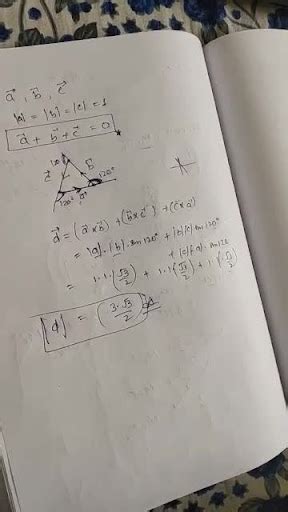 a⃗ , b⃗ , c⃗
|a| = |b| = |c| = 1
a⃗ + b⃗ + c⃗ = 0
c⃗ b⃗
120°
120° a⃗
d⃗ = (a⃗ × b⃗) + (b⃗ × c⃗) + (c⃗ × a⃗)
= |a|·|b| sin 120° + |b||c| sin 120°
+ |c||a| sin 120
= 1·1·(√3/2) + 1·1(√3/2) + 1·1(√3/2)
|d| = (3·√3/2)